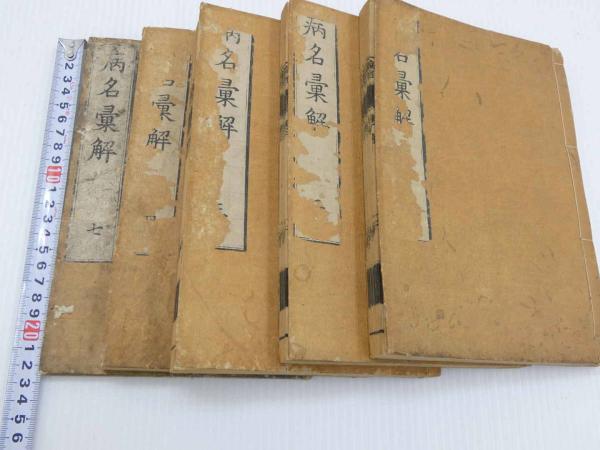 病名彙解
七
彙解
名彙解
病名彙解
彙解
2 3 4 5 6 7 8 9 10 1 2 3 4 5 6 7 8 9 20 1 2 3 4 5 6